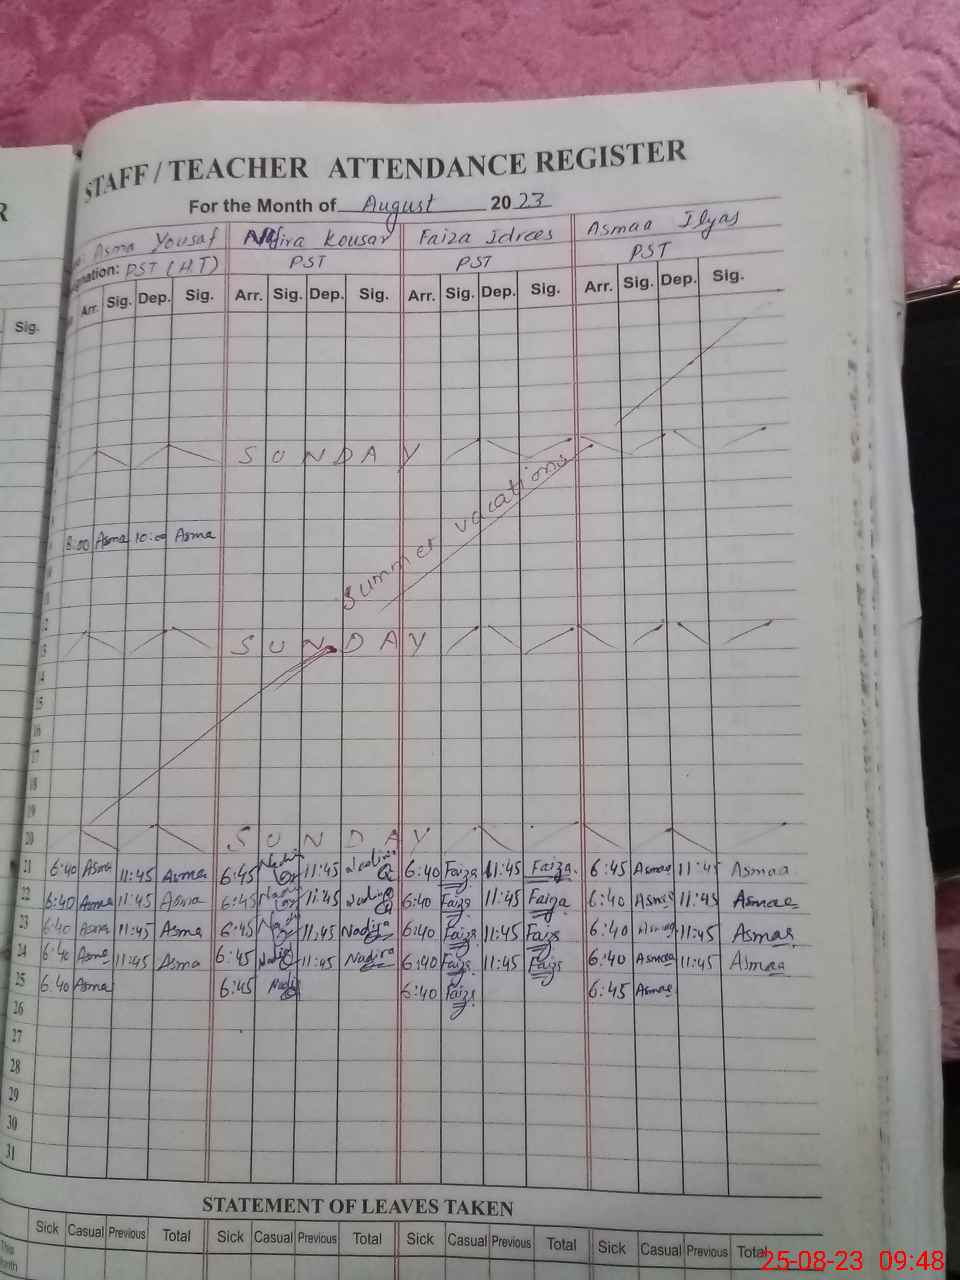 STAFF / TEACHER ATTENDANCE REGISTER
R
For the Month of August 2023
Asma Yousaf Nadira Kousar Faiza Idrees Asmaa Ilyas
PST (H.T) PST PST PST
Sig. Arr. Sig. Dep. Sig. Arr. Sig. Dep. Sig. Arr. Sig. Dep. Sig. Arr. Sig. Dep. Sig.
SUNDAY
Summer vacations
8:00 Asma 10:00 Asma
12
13 SUNDAY
14
15
16
17
18
19
20 SUNDAY
21 6:40 Asma 11:45 Asma 6:45 Nadira 11:45 Nadira 6:40 Faiza 11:45 Faiza 6:45 Asmaa 11:45 Asmaa
22 6:40 Asma 11:45 Asma 6:45 11:45 Nadira 6:40 Faiza 11:45 Faiza 6:40 Asmaa 11:45 Asmaa
23 6:40 Asma 11:45 Asma 6:45 11:45 Nadira 6:40 Faiza 11:45 Faiza 6:40 Asmaa 11:45 Asmaa
24 6:40 Asma 11:45 Asma 6:45 Nadira 11:45 Nadira 6:40 Faiza 11:45 Faiza 6:40 Asmaa 11:45 Asmaa
25 6:40 Asma 6:45 Nadira 6:40 Faiza 6:45 Asmaa
26
27
28
29
30
31
STATEMENT OF LEAVES TAKEN
Sick Casual Previous Total Sick Casual Previous Total Sick Casual Previous Total Sick Casual Previous Total
This
Month
25-08-23 09:48